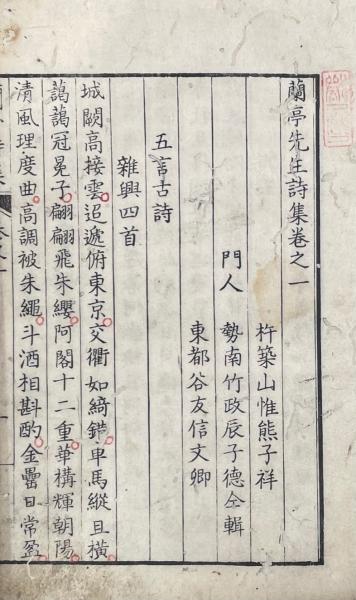 蘭亭先生詩集卷之一
杵築山惟熊子祥
門人　勢南竹政辰子德仝輯
東都谷友信文卿
五言古詩
雜興四首
城闕高接雲迢遞俯東京交衢如綺錯車馬縱且橫
藹藹冠冕子翩翩飛朱纓阿閣十二重華構輝朝陽
清風理度曲高調被朱繩斗酒相斟酌金罍日常盈